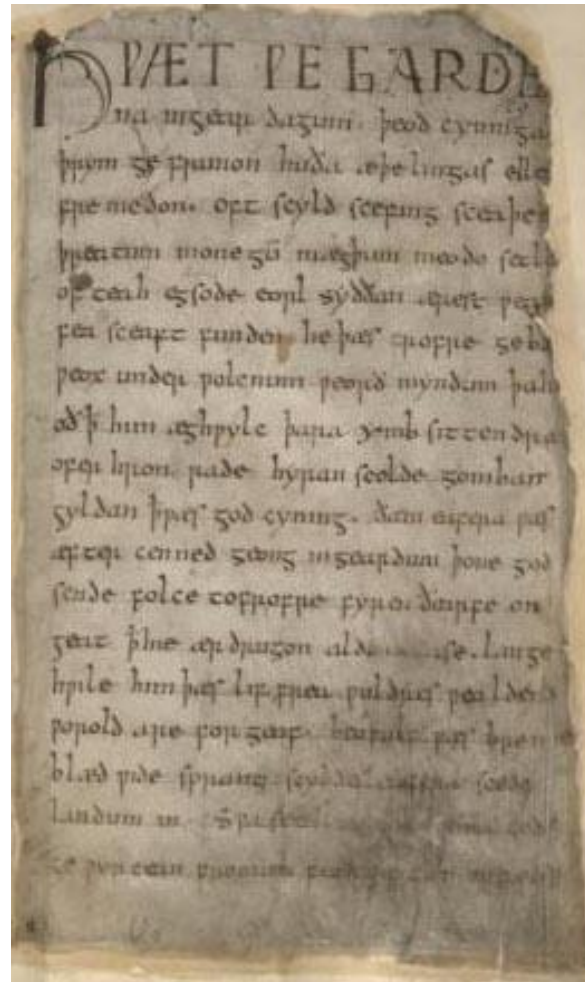 HǷÆT ǷE GARDE
na ingear dagum. þeod cyninga
þrym ge frunon huða æþelingas elle
fremedon. oft scyld scefing sceaþen
þreatum monegū mægþum meodo setla
of teah egsode eorl syððan ærest ƿearð
fea sceaft funden he þæs frofre geba
ƿeox under ƿolcnum ƿeorð myndum þah
oð ꝥ him æghƿylc þara ymb sittendra
ofer hron rade hyran scolde gomban
gyldan þƿæs god cyning. ðam eafera ƿæs
æfter cenned geong in geardum þone god
sende folce tofrofre fyren ðearfe on
geat ꝥ hie ær drugon aldor ase. lange
hƿile him þæs lif frea ƿuldres ƿealdend
ƿorold are forgeaf. beoƿulf ƿæs breme
blæd ƿide sprang scyldes eafera scede
landum in. sƿa sceal